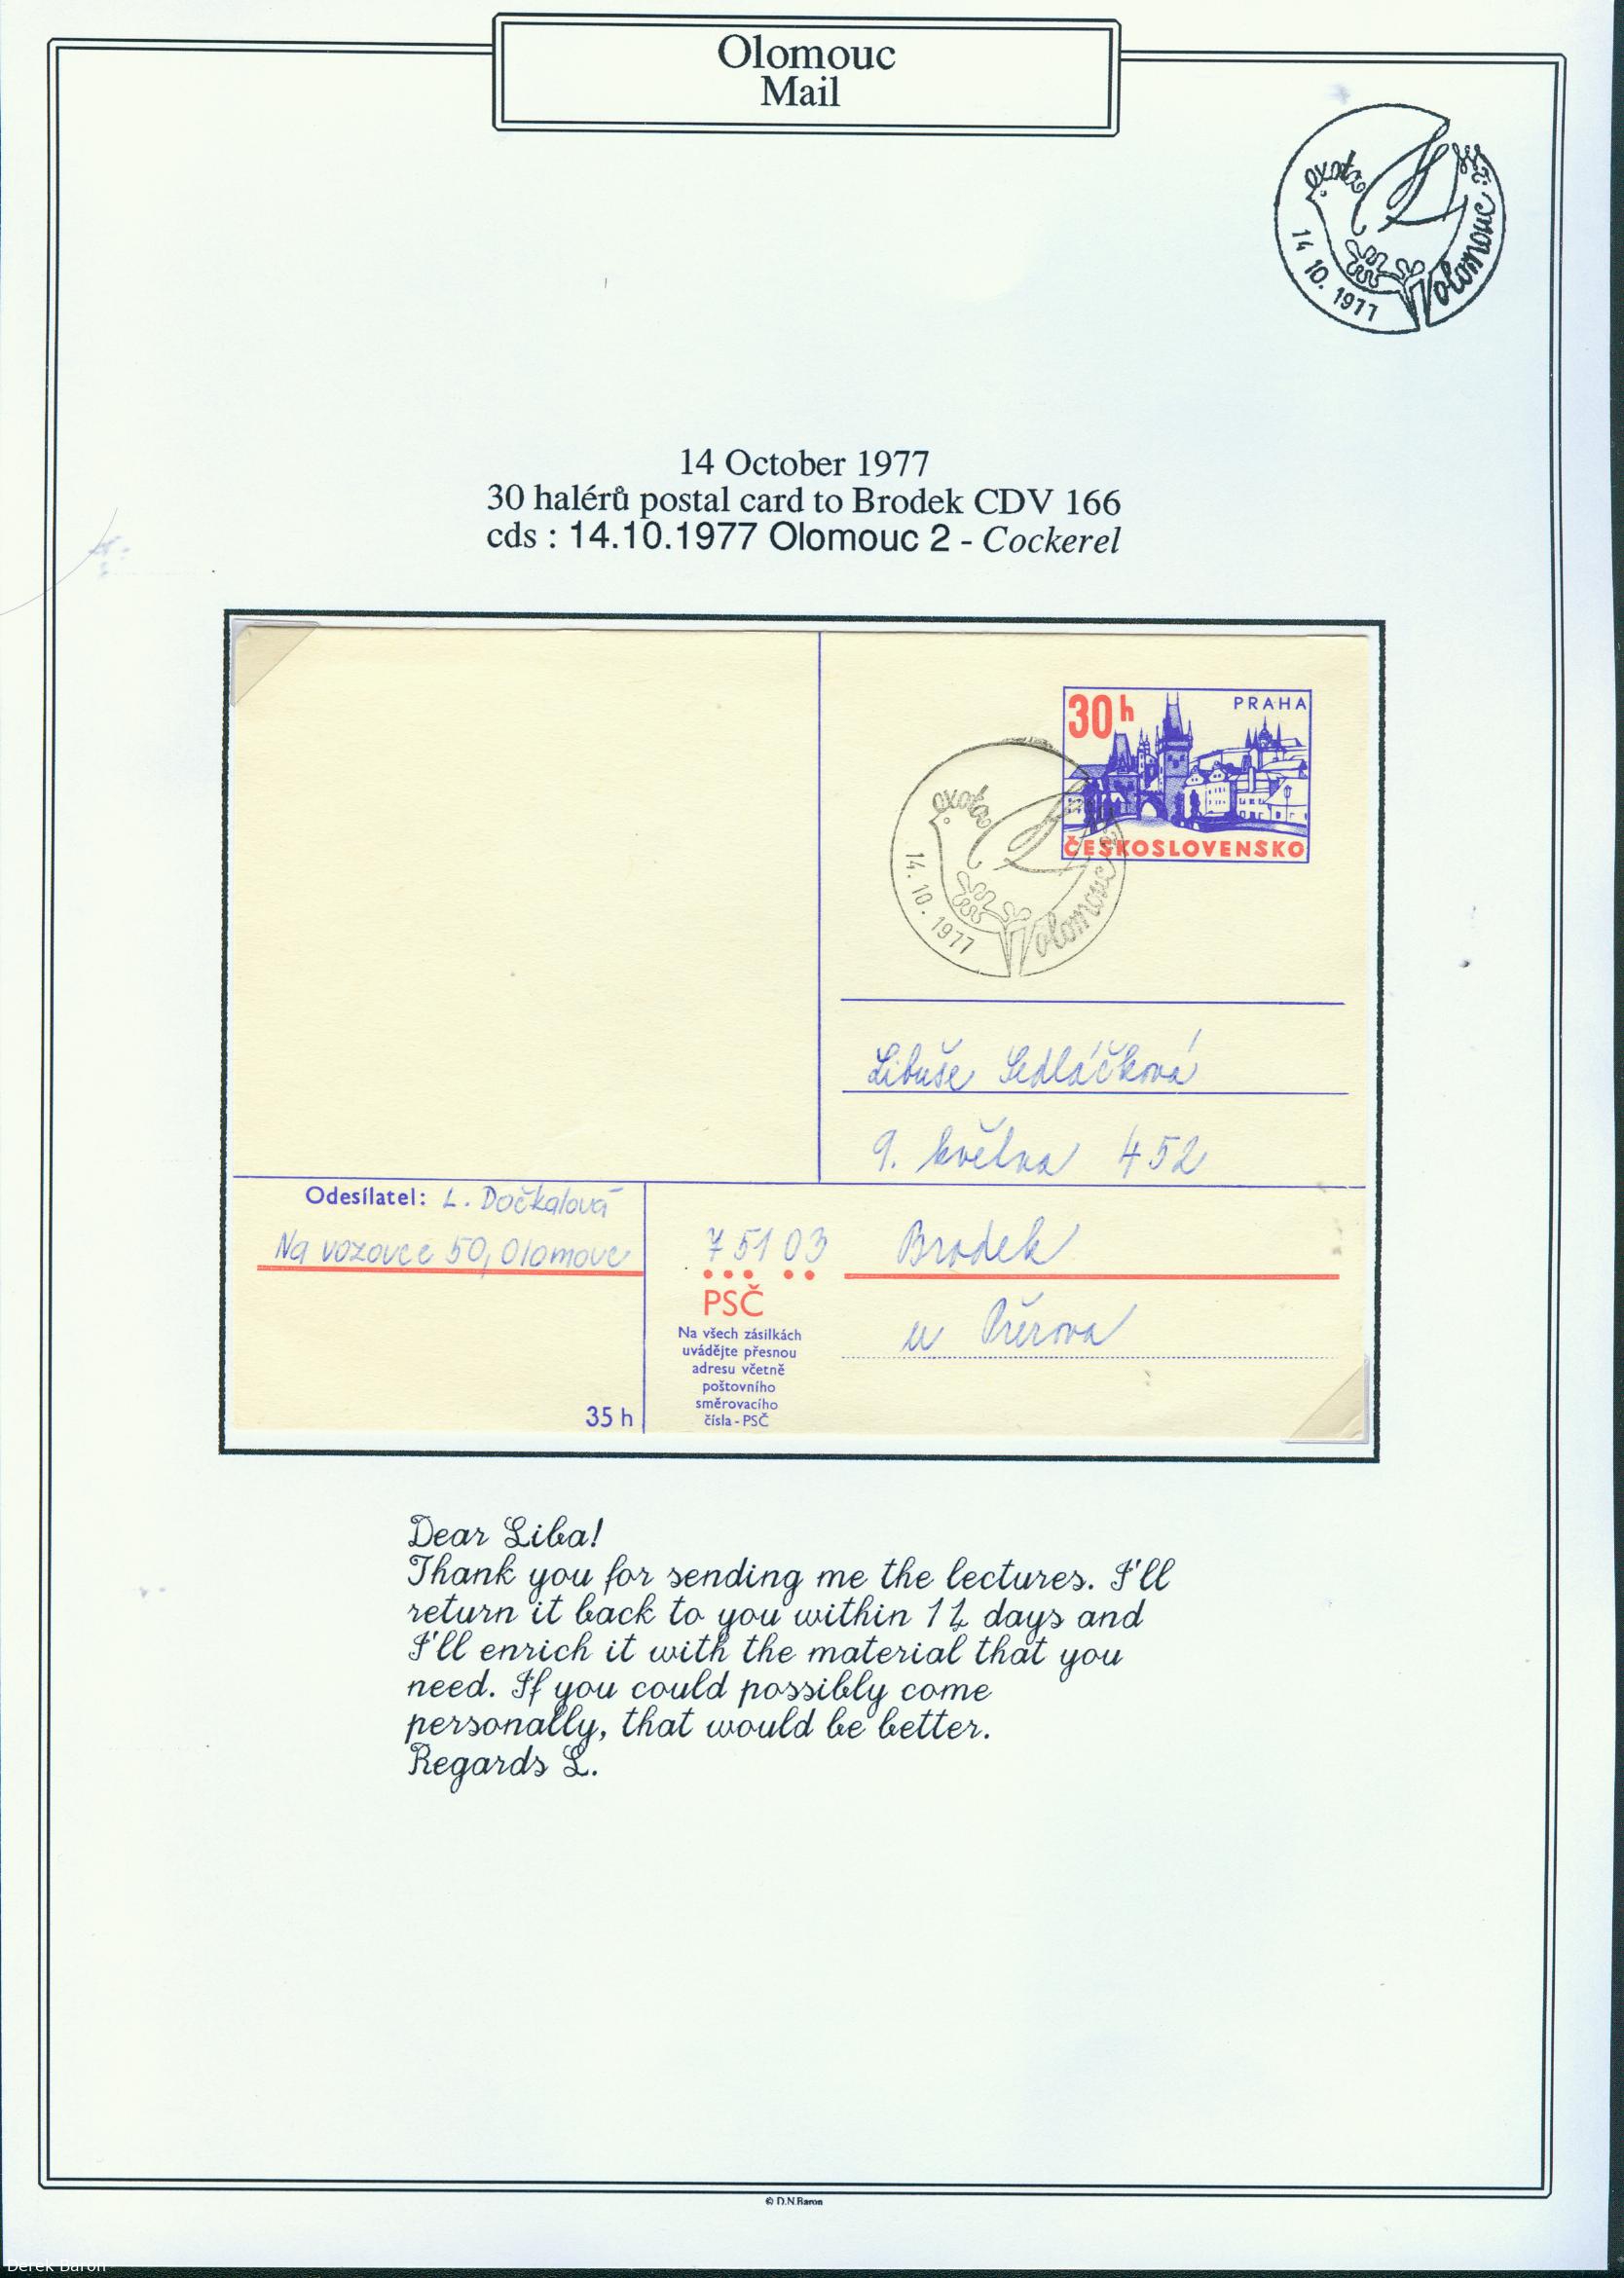 Olomouc
Mail
exota
14 10. 1977
Olomouc 2
14 October 1977
30 halérů postal card to Brodek CDV 166
cds : 14.10.1977 Olomouc 2 - Cockerel
30h
PRAHA
ČESKOSLOVENSKO
exota
14. 10. 1977
Olomouc 2
Libuše Sedláčková
9. května 452
Odesílatel: L. Dočkalová
Na vozovce 50, Olomouc
751 03 Brodek
PSČ
u Přerova
Na všech zásilkách
uvádějte přesnou
adresu včetně
poštovního
směrovacího
čísla - PSČ
35 h
Dear Liba!
Thank you for sending me the lectures. I'll
return it back to you within 14 days and
I'll enrich it with the material that you
need. If you could possibly come
personally, that would be better.
Regards L.
© D.N.Baron
Derek Baron